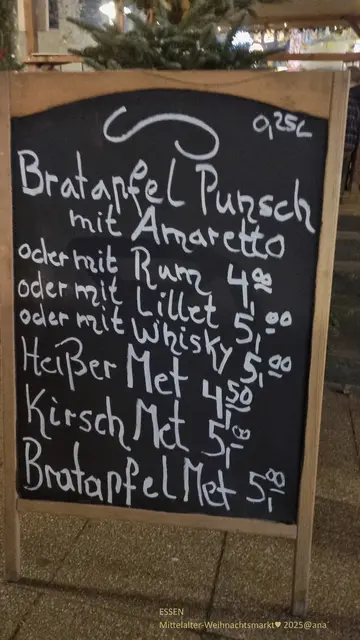 0,25L
Bratapfel Punsch
mit Amaretto
oder mit Rum 4,00
oder mit Lillet 5,00
oder mit Whisky 5,00
Heißer Met 4,50
Kirsch Met 5,00
Bratapfel Met 5,00
ESSEN
Mittelalter-Weihnachtsmarkt♥ 2025@ana